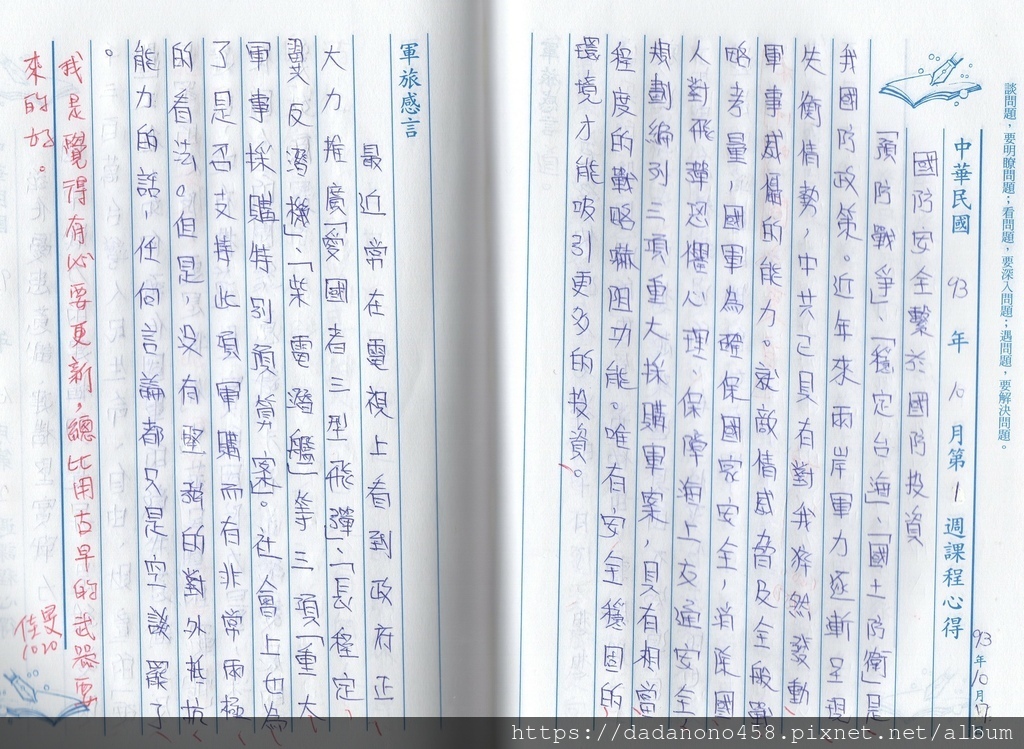 談問題，要明瞭問題；看問題，要深入問題；遇問題，要解決問題。
93年10月17
中華民國 93 年 10 月第 1 週課程心得
國防安全繫於國防投資
「預防戰爭」、「穩定台海」、「國土防衛」是
我國防政策。近年來兩岸軍力逐漸呈現
失衡情勢，中共已具有對我猝然發動
軍事威懾的能力。就敵情威脅及全般戰
略考量，國軍為確保國家安全，消除國
人對飛彈恐懼心理、保障海上交通安全
規劃編列三項重大採購軍案，具有相當
程度的戰略嚇阻功能。唯有安全穩固的
環境才能吸引更多的投資。
軍旅感言
最近常在電視上看到政府正
大力推廣「愛國者三型飛彈」、「長程定
翼反潛機」、「柴電潛艦」等三項「重大
軍事採購特別預算案」。社會上也為
了是否支持此項軍購而有非常兩極
的看法。但是，沒有堅強的對外抵抗
能力的話，任何言論都只是空談罷了
。
我是覺得有心要更新，總比用古早的武器要
來的好。
佳曼
1020
https://dadanono458.pixnet.net/album